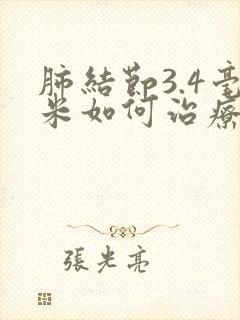 肺結節3.4毫
米如何治療
張光亮